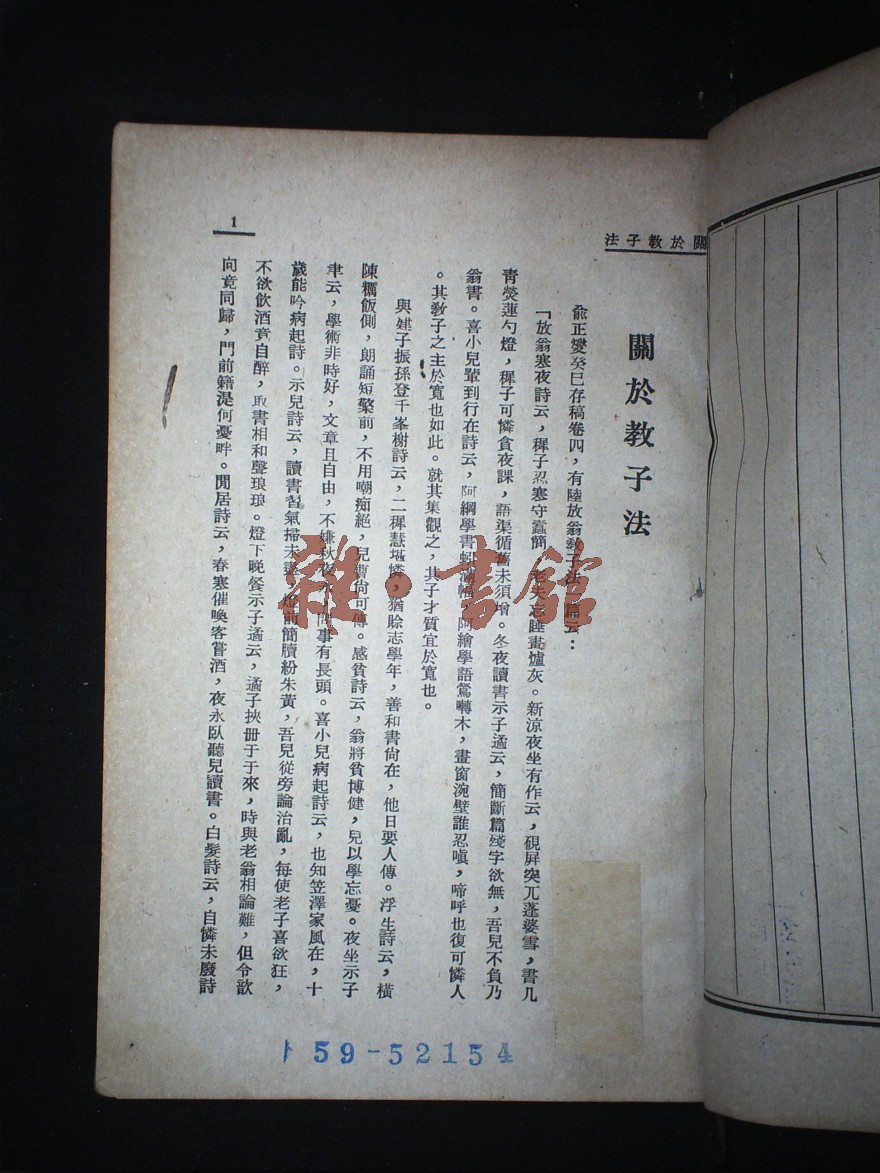 關於教子法
1
關於教子法
俞正燮癸巳存稿卷四，有陸放翁教子法一篇云：
「放翁寒夜詩云，稚子忍寒守蠹簡，老夫忘睡畫爐灰。新涼夜坐有作云，硯屏突兀蓬婆雪，書几
青熒蓮勺燈，稚子可憐貪夜課，語渠循舊未須增。冬夜讀書示子遹云，簡斷篇殘字欲無，吾兒不負乃
翁書。喜小兒輩到行在詩云，阿綱學書蚓滿幅，阿繪學語鶯囀木，畫窗涴壁誰忍嗔，啼呼也復可憐人
。其敎子之主於寬也如此。就其集觀之，其子才質宜於寬也。
與建子振孫登千峯榭詩云，二稚慧堪憐，猶賒志學年，善和書尙在，他日要人傳。浮生詩云，橫
陳糲飯側，朗誦短檠前，不用嘲痴絕，兒曹尙可傳。感貧詩云，翁將貧博健，兒以學忘憂。夜坐示子
聿云，學術非時好，文章且自由，不嫌秋夜永，問事有長頭。喜小兒病起詩云，也知笠澤家風在，十
歲能吟病起詩。示兒詩云，讀書習氣掃未盡，燈前簡牘紛朱黃，吾兒從旁論治亂，每使老子喜欲狂，
不欲飲酒竟自醉，取書相和聲琅琅。燈下晚餐示子遹云，遹子挾册于于來，時與老翁相論難，但令歆
向竟同歸，門前籍湜何憂畔。閒居詩云，春寒催喚客嘗酒，夜永臥聽兒讀書。白髮詩云，自憐未廢詩
雜·書館
59-52154